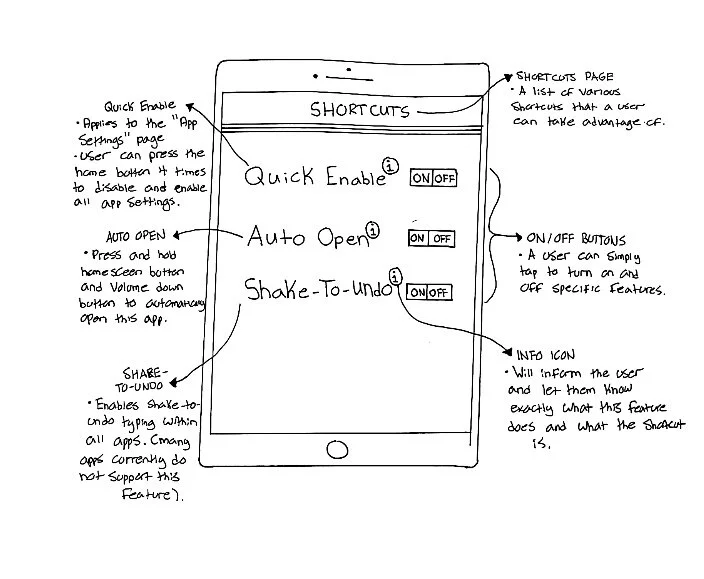 SHORTCUTS
Quick Enable i ON OFF
Auto Open i ON OFF
Shake-To-Undo i ON OFF
Quick Enable
• Applies to the "App
Settings" page
• User can press the
home button 4 times
to disable and enable
all app settings.
AUTO OPEN
• Press and hold
homescreen button
and volume down
button to automatically
open this app.
SHAKE-
TO-UNDO
• Enables shake-to-
undo typing within
all apps. (many
apps currently do
not support this
feature).
SHORTCUTS PAGE
• A list of various
shortcuts that a user
can take advantage of.
ON/OFF BUTTONS
• A user can simply
tap to turn on and
off specific features.
INFO ICON
• Will inform the user
and let them know
exactly what this feature
does and what the shortcut
is.